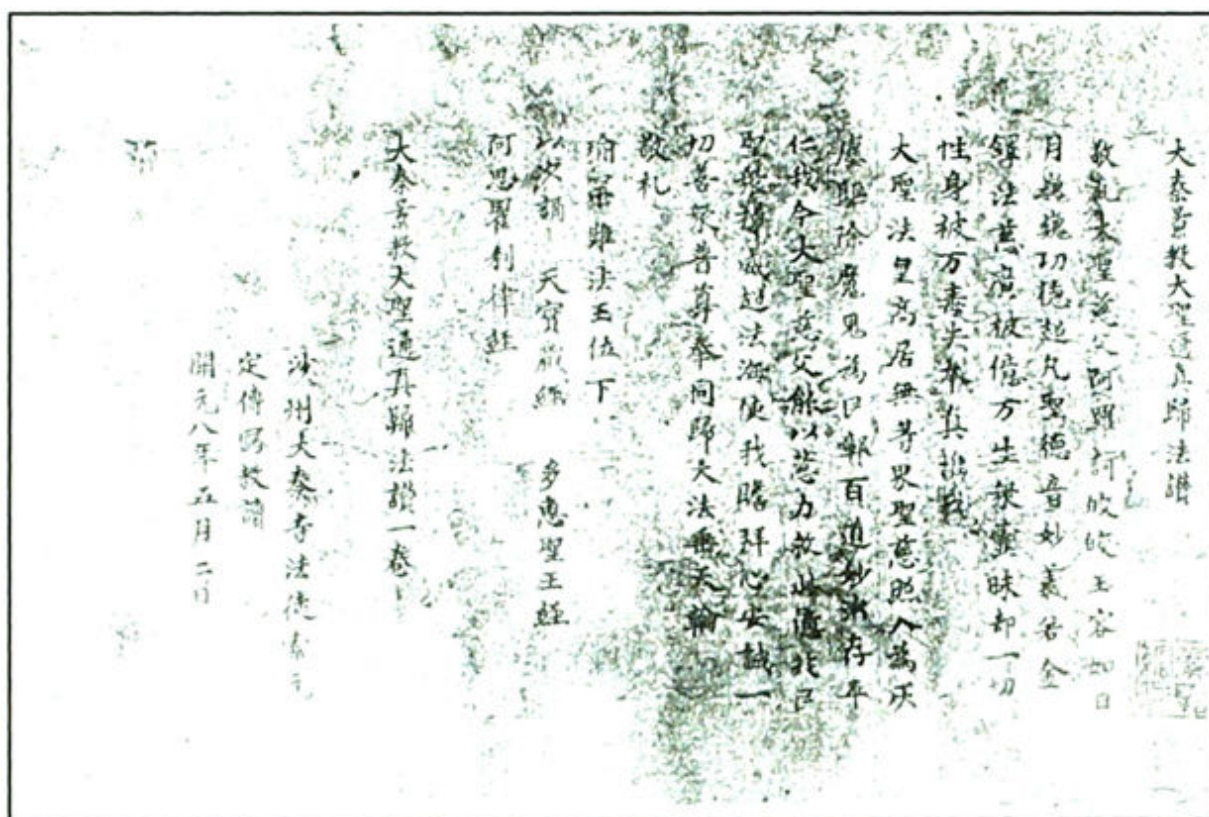 大秦景教大聖通真歸法讚
敬礼大聖慈父阿羅訶皎皎玉容如日
月巍巍功德超凡聖德音妙義若金
鐸法慈廣被億万生衆靈昧却一切
性身被万毒失本真惟我
大聖法皇高居無等界聖慈照入為灰
塵驅除魔鬼為民鄣百道妙治存平
仁我今大聖慈父能以慧力救此億兆民
聖衆神威超法海使我瞻拜心安誠一
切善衆普尊奉同歸大法垂天輪
敬礼
瑜罕難法王位下
以次誦 天寶藏經 多惠聖王經
阿思瞿利律經
大秦景教大聖通真歸法讚一卷
沙州大秦寺法徒索元
定傳寫教讀
開元八年五月二日